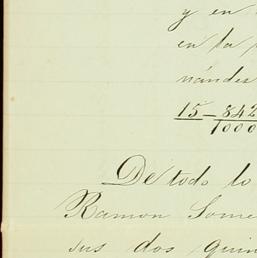 y en
en la
nández
15-842
1000
De todo lo
Ramon Some
sus dos quin